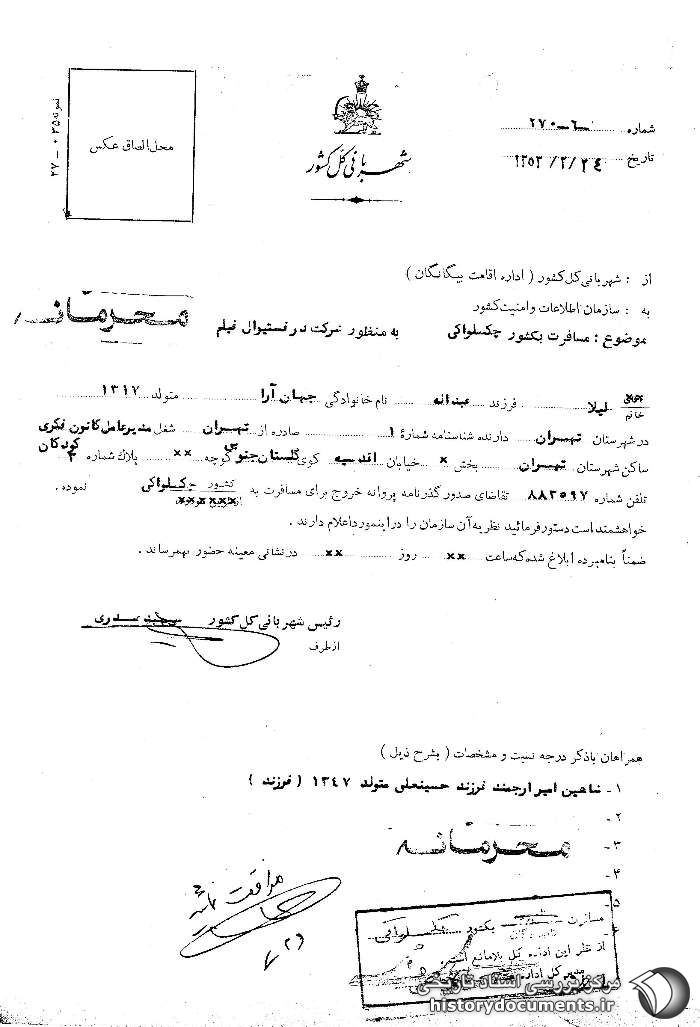 شماره ۲۷۰-۶
تاریخ ۱۳۵۳/۲/۲۴
شهربانی کل کشور
محل الصاق عکس
نمونه ۰۳۵ - ۲۷
از : شهربانی کل کشور ( اداره اقامت بیگانگان )
به : سازمان اطلاعات و امنیت کشور
محرمانه
موضوع : مسافرت بکشور چکسلواکی به منظور شرکت در فستیوال فیلم
خانم لیلا فرزند عبداله نام خانوادگی جهان آرا متولد ۱۳۱۷
در شهرستان تهران دارنده شناسنامه شمارهٔ ۱ صادره از تهران شغل مدیرعامل کانون فکری کودکان
ساکن شهرستان تهران بخش × خیابان اقدسیه کوی گلستان جنوبی کوچه ×× پلاک شماره ۴
تلفن شماره ۸۸۲۵۹۷ تقاضای صدور گذرنامه پروانه خروج برای مسافرت به کشور چکسلواکی نموده .
خواهشمند است دستور فرمائید نظریه آن سازمان را در اینمورد اعلام دارند .
ضمناً بنامبرده ابلاغ شده که ساعت ×× روز ×× در نشانی معینه حضور بهمرساند .
رئیس شهربانی کل کشور صدری
از طرف
همراهان باذکر درجه نسبت و مشخصات ( بشرح ذیل )
۱ - شاهین امیر ارجمند فرزند حسینعلی متولد ۱۳۴۷ ( فرزند )
۲ -
۳ -
محرمانه
۴ -
۵ -
۶ -
موافقت
مسافرت بکشور چکسلواکی
از نظر این اداره کل بلامانع است
مدیر کل اداره
مرکز بررسی اسناد تاریخی
historydocuments.ir